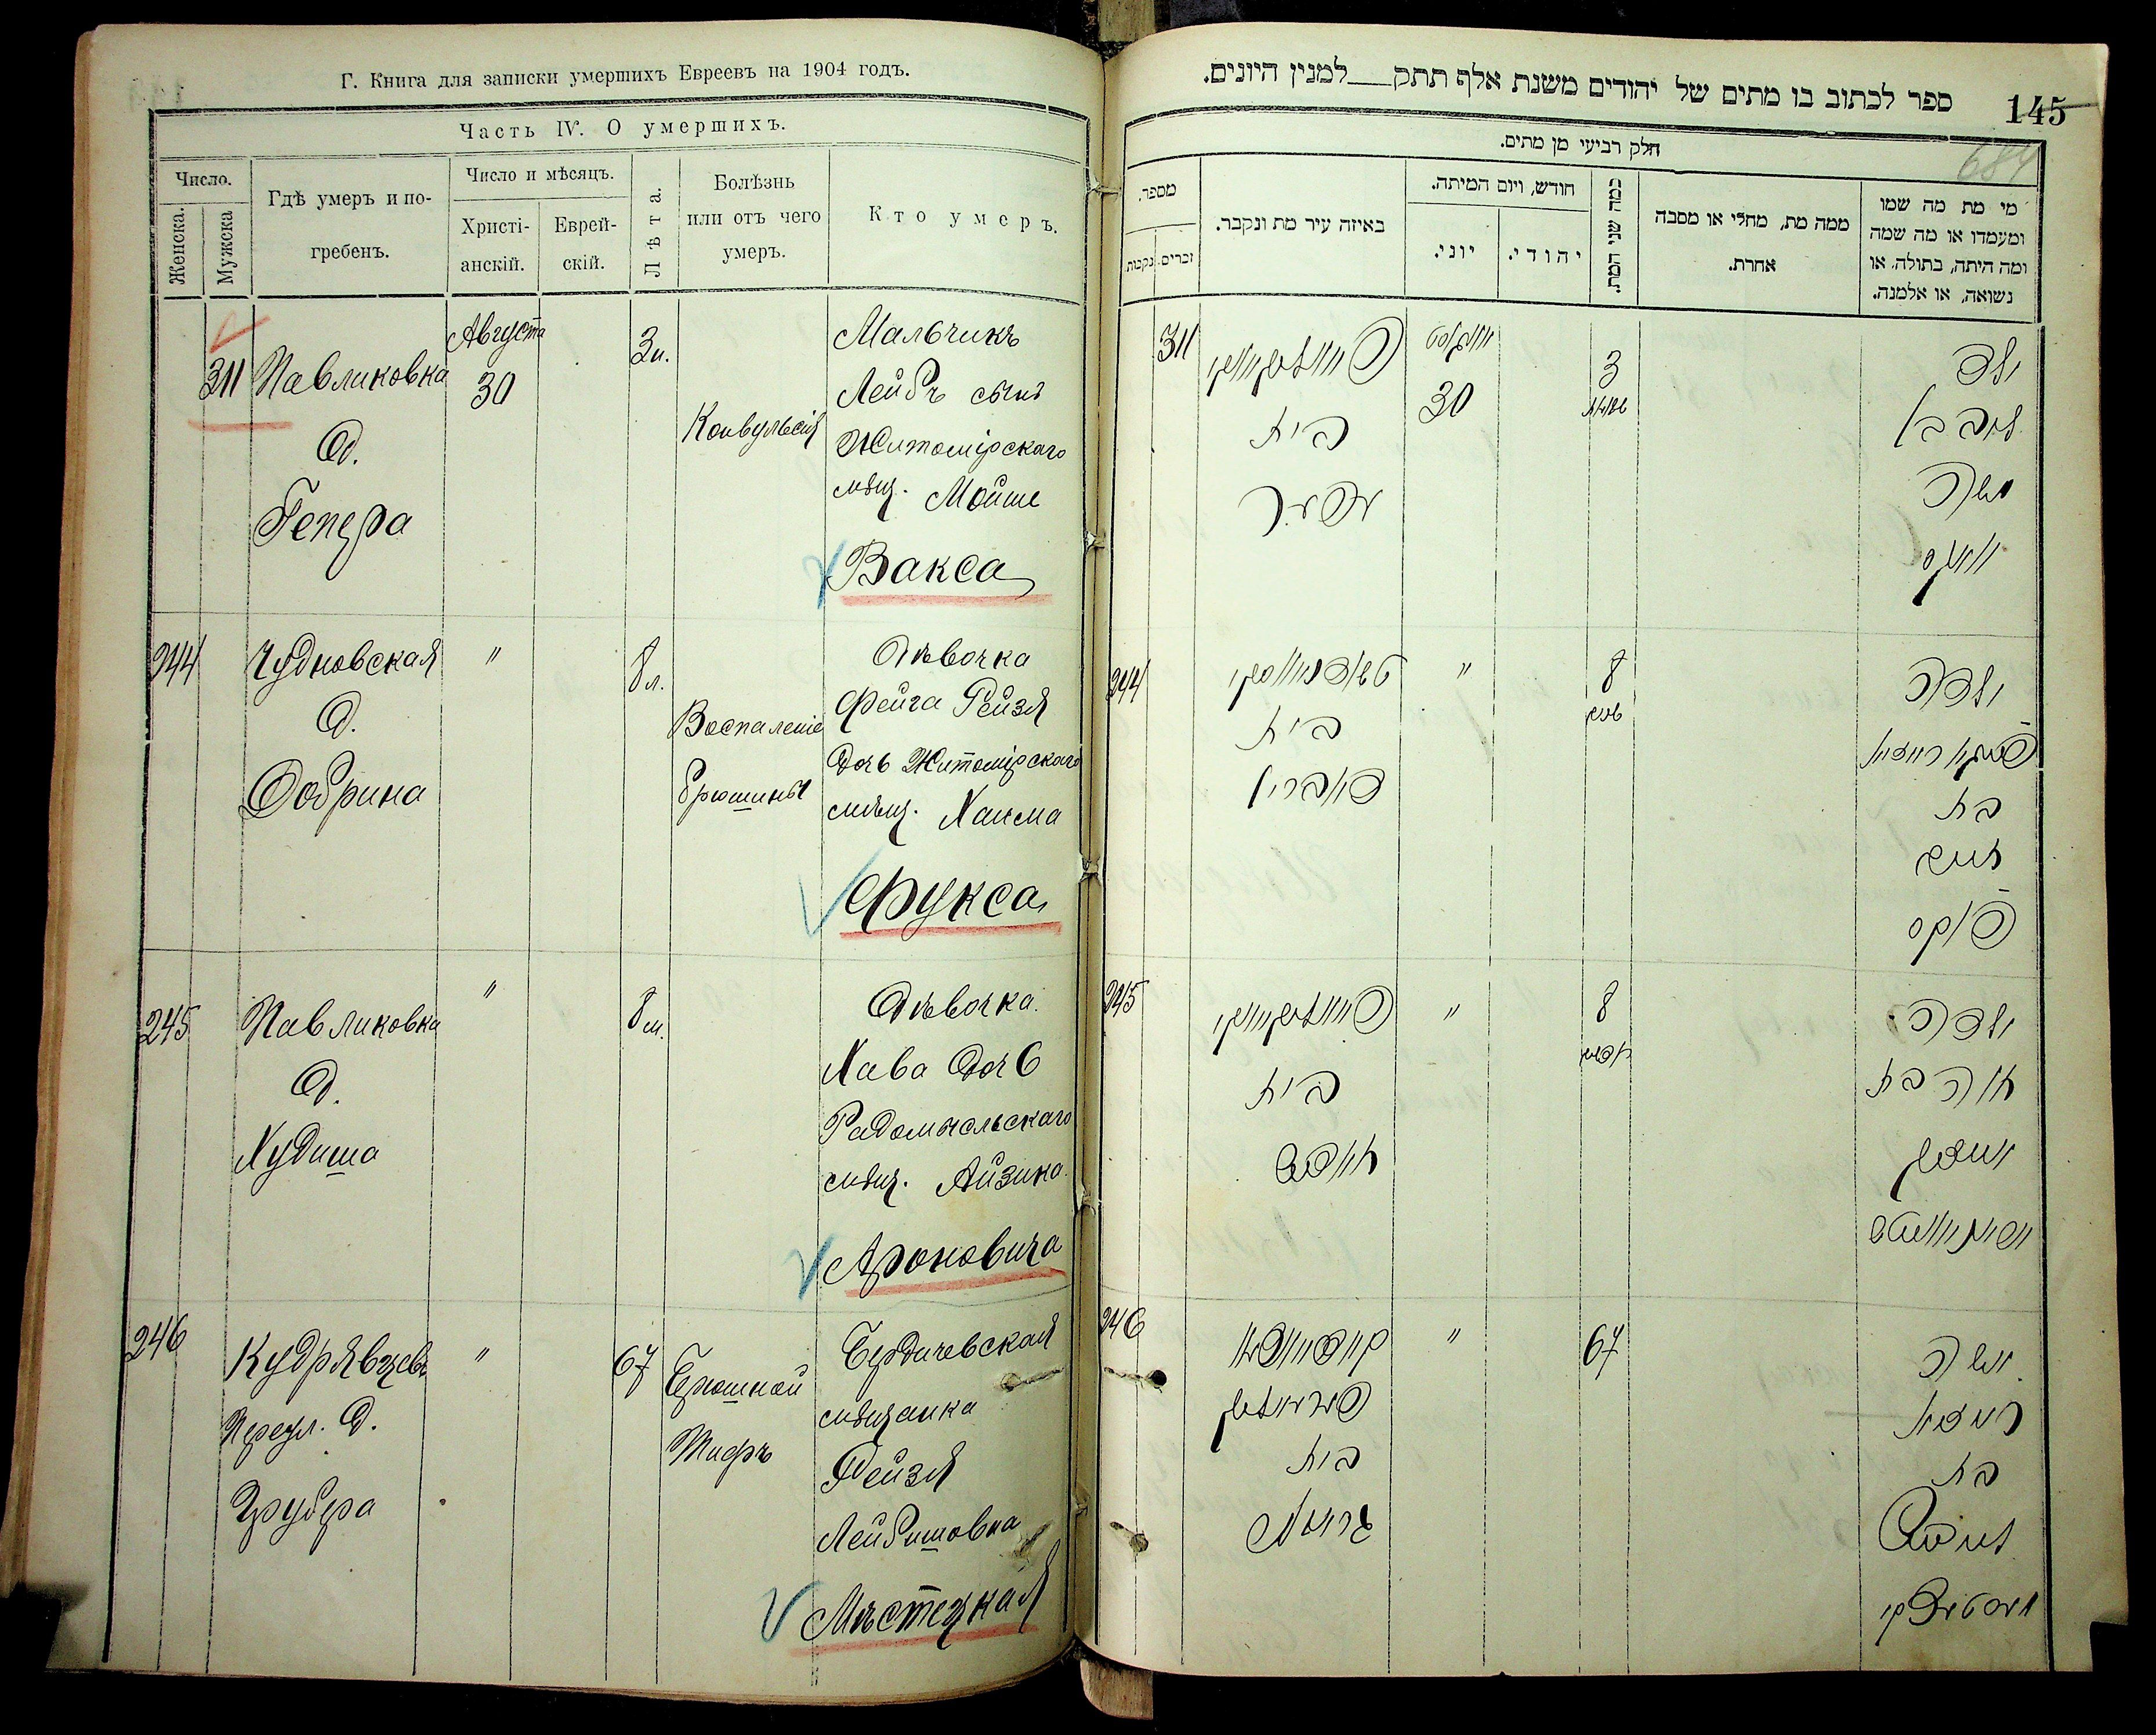 Г. Книга для записки умершихъ Евреевъ на 1904 годъ.
Часть IV. О умершихъ.
Число.
Женска.
Мужска
Гдѣ умеръ и по-
гребенъ.
Число и мѣсяцъ.
Христі-
анскій.
Еврей-
скій.
Лѣта.
Болѣзнь
или отъ чего
умеръ.
Кто умеръ.
311
Павликовка
д.
Гепера
Августа
30
3 н.
Конвульсія
Мальчикъ
Лейбъ сынъ
Житомірскаго
мѣщ. Мойше
Вакса
244
Чудновская
д.
Добрина
"
8 л.
Воспаленіе
брюшины
Дѣвочка
Фейга Рейзя
дочь Житомірскаго
мѣщ. Хаима
Фукса
245
Павликовка
д.
Худиша
"
8 м.
Дѣвочка
Хава дочь
Радомысльскаго
мѣщ. Айзика
Ароновича
246
Кудрявцевъ
переул. д.
Грубера
"
67
Брюшной
Тифъ
Бердичевская
мѣщанка
Рейзя
Лейбишовна
Мястецкая
145
684
ספר לכתוב בו מתים של יהודים משנת אלף תתק__למנין היונים.
חלק רביעי מן מתים.
מספר.
זכרים.
נקבות.
באיזה עיר מת ונקבר.
חודש, ויום המיתה.
יוני.
יהודי.
כמה שני המת.
ממה מת, מחלי או מסבה
אחרת.
מי מת מה שמו
ומעמדו או מה שמה
ומה היתה, בתולה, או
נשואה, או אלמנה.
311
בית
30
3
ילד
ליב בן
משה
וואקס
244
בית
דוברין
"
8
שנים
ילדה
בת
חיים
פוקס
245
בית
"
8
ילדה
חוה בת
אייזיק
246
בית
"
67
אשה
רייזיא
בת
לייביש